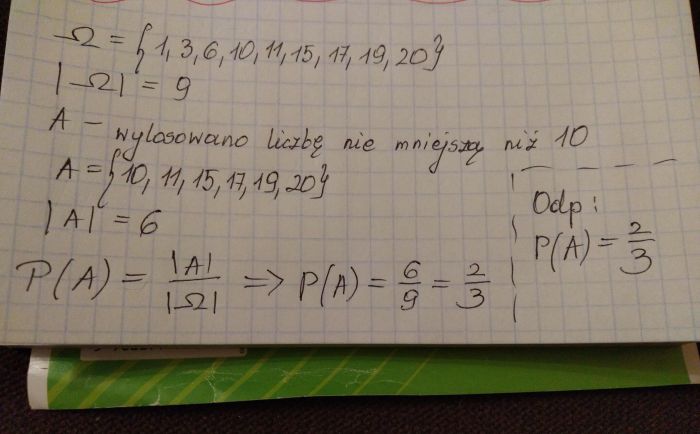 Ω = {1, 3, 6, 10, 11, 15, 17, 19, 20}
|Ω| = 9
A – wylosowano liczbę nie mniejszą niż 10
A = {10, 11, 15, 17, 19, 20}
|A| = 6
P(A) = |A|/|Ω| => P(A) = 6/9 = 2/3
Odp:
P(A) = 2/3